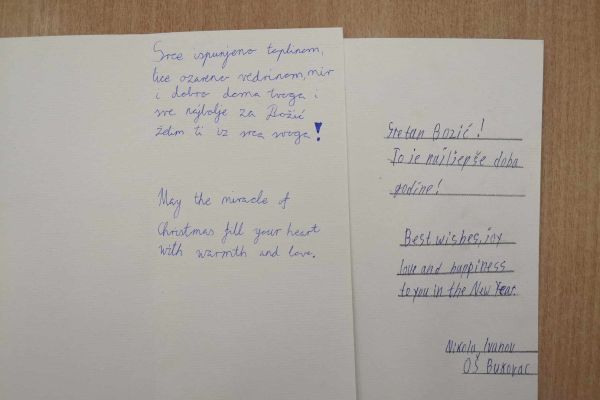 Srce ispunjeno toplinom,
lice ozareno vedrinom, mir
i dobro doma tvoga i
sve najbolje za Božić
želim ti iz srca svoga!
May the miracle of
Christmas fill your heart
with warmth and love.
Sretan Božić!
To je najljepše doba
godine!
Best wishes, joy
love and happiness
to you in the New Year.
Nikola Ivanov
OŠ Bukovac